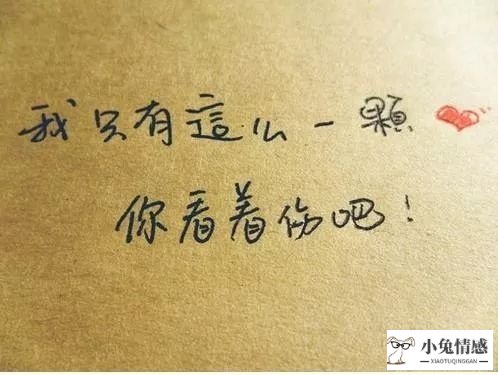 我只有這么一顆
你看着伤吧！
小兔情感
XIAOTUQINGGAN